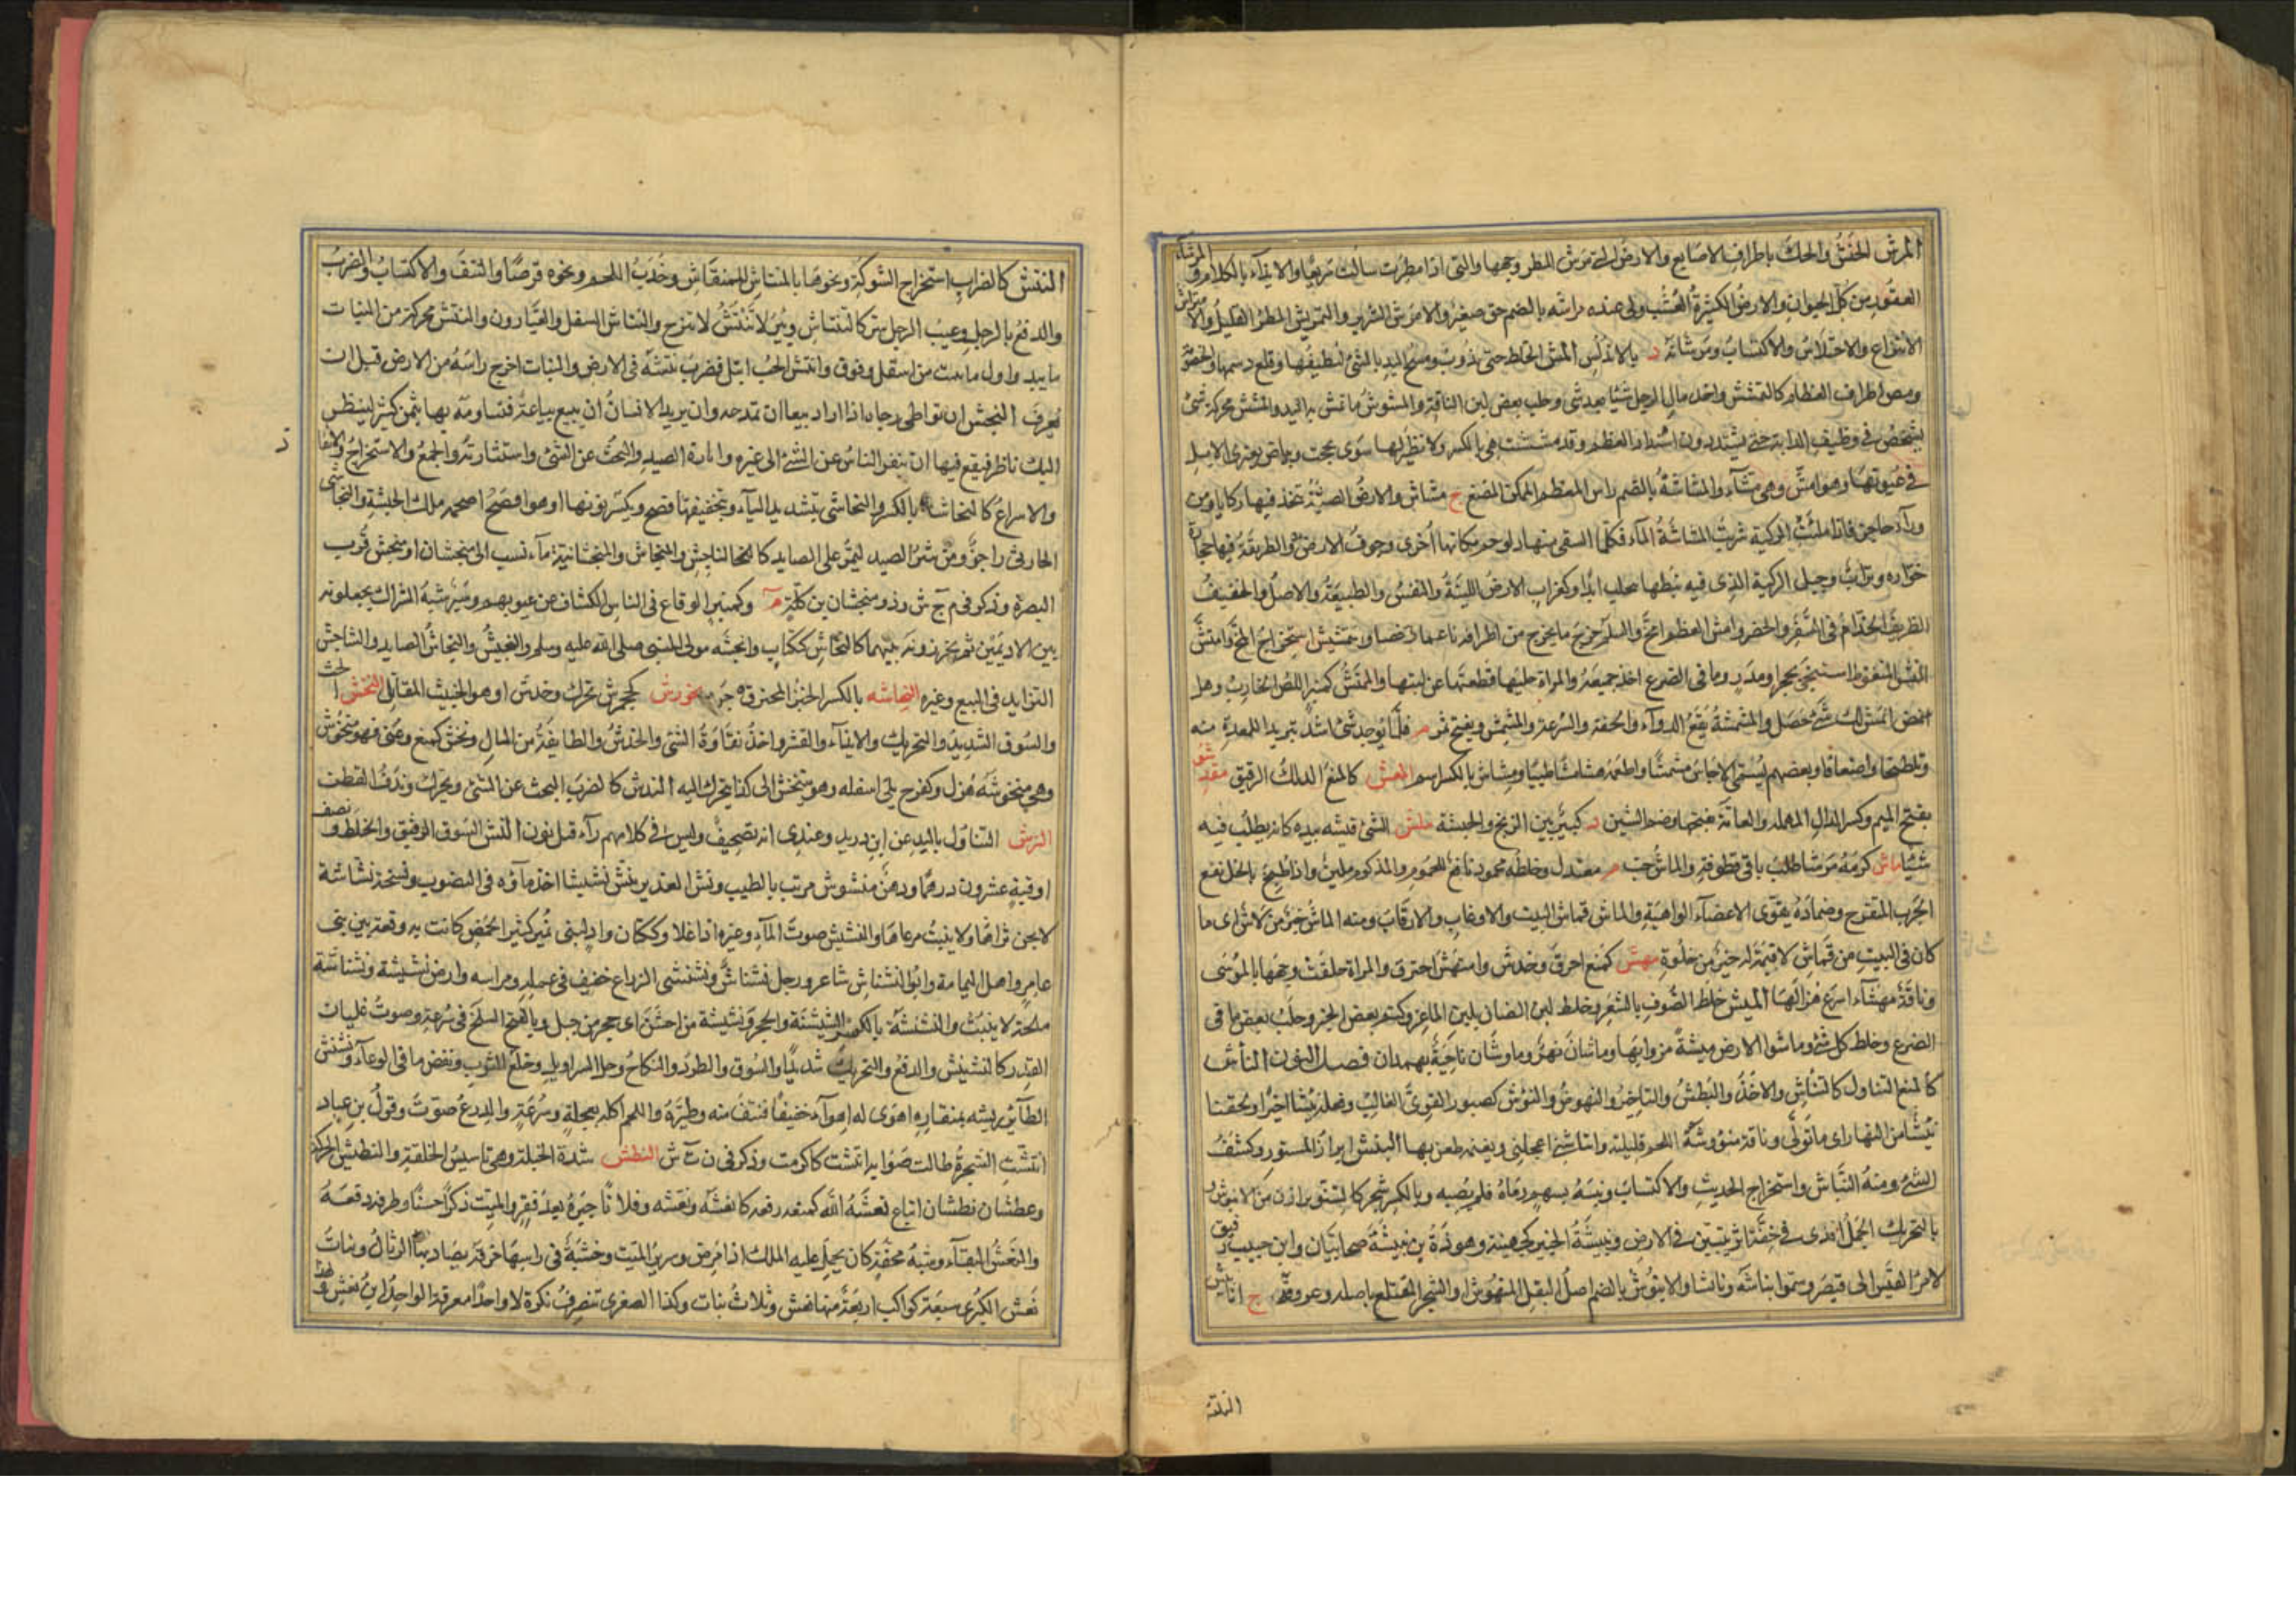 المرش الخدش والحك باطراف الاصابع والارض التى مرش المطر وجهها والتى اذا مطرت سالت سريعا والايذاء بالكلام والمرشاء
العقور من كل الحيوان والارض الكثيرة العشب ولى عنده مراشة بالضم حق صغير والامرش الشرير والتمريش المطر القليل والامتراش
الانتزاع والاختلاس والاكتساب ومرشانة د بالاندلس المش الخلط حتى يذوب ومسح اليد بالشئ لتنظيفها وقلع دسمها والخصومة
ومص اطراف العظام كالتمشش واخذ مال الرجل شيئا بعد شئ وحلب بعض لبن الناقة والمشوش ما تمش به اليد والمشش محركة شئ
يشخص فى وظيف الدابة حتى يشتد دون اشتداد العظم وقد مششت هى بالكسر ولا نظير لها سوى لححت وبياض يعترى الابل
فى عيونها وهو امش وهى مشاء والمشاشة بالضم راس العظم الممكن المضغ ج مشاش والارض الصلبة تتخذ فيها ركايا ومن
وراء حاجز فاذا ملئت الركية شربت المشاشة الماء فكلما استقى منها دلو جم مكانها اخرى وجوف الارض والطريقة فيها حجارة
خوارة وتراب وجبل الركية الذى فيه نبطها يتحلب ابدا وكغراب الارض اللينة والنفس والطبيعة والاصل والخفيف
الظريف الخدام فى السفر والحضر وامش العظم امخ والسلم خرج ما يخرج من اطرافه ناعما رخصا والتمشيش استخراج المخ وامتش
الشئ المتغوط استنجى بحجر او مدر وما فى الضرع اخذ جميعه والمراة حليها قطعتها عن لبتها والممتش كمنبر اللص الخارب وهل
انمش لك شئ حصل والمشمشة نقع الدواء والخفة والسرعة والمشمش ويفتح ثمر م قلما يوجد شئ اشد تبريدا للمعدة منه
وتلطيخا واضعافا وبعضهم يسمى الاجاص مشمشا واطعمه هشا مشا طيبا ومشاش بالكسر اسم المعش كالمنع الدلك الرقيق مقدشو
بفتح الميم وكسر الدال المهملة والعامة تفتحها وضم الشين د كبير بين الزنج والحبشة ملش الشئ فتشه بيده كانه يطلب فيه
شيئا ماش كرمه موشا طلب باقى قطوفه والماش حب م معتدل وخلطه محمود نافع للمحموم والمزكوم ملين واذا طبخ بالخل نفع
الجرب المتقرح وضماده يقوى الاعضاء الواهية والماش قماش البيت والاوغاب والاوقاب ومنه الماش خير من لاش اى ما
كان فى البيت من قماش لا قيمة له خير من خلوه مهش كمنع احرق وخدش وامتهش احترق والمراة حلقت وجهها بالموسى
وناقة مهشاء اسرع هزالها الميش خلط الصوف بالشعر وخلط لبن الضان بلبن الماعز وكتم بعض الخبر وحلب بعض ما فى
الضرع وخلط كل شئ وماشوا الارض ميشة مروا بها وماشان نهر وماوشان ناحية بهمدان فصل النون النأش
كالمنع التناول كالتناش والاخذ والبطش والتاخير والنهوض والنؤش كصبور القوى الغالب وفعله نئيشا اخيرا ولحقنا
نئيشا من النهار اى ما تولى وناقة منؤوشة اللحم قليلته وانتاشنى اعجلنى وبفتنة طعن بها النبش ابراز المستور وكشف
الشئ ومنه النباش واستخراج الحديث والاكتساب ونبشه بسهم رماه فلم يصبه وبالكسر شجر كالصنوبر ارزن من الابنوس
بالتحريك الجمل الذى فى خفه اثر يتبين فى الارض ونبيشة الخير كجهينة وهوذة بن نبيشة صحابيان وابن حبيب رفيق
لامرئ القيس الى قيصر وسموا نباشة ونابشا والانبوش بالضم اصل البقل المنبوش او الشجر المقتلع باصله وعروقه ج انابيش
النتش كالضرب استخراج الشوكة ونحوها بالمنتاش للمنقاش وجذب اللحم ونحوه قرصا والنتف والاكتساب والضرب
والدفع بالرجل وعيب الرجل سرا كالتنتاش وبئر لا تنتش لا تنزح والنتاش السفل والعيارون والنتش محركة من النبات
ما يبدو اول ما ينبت من اسفل وفوق وانتش الحب ابتل فضرب نتشه فى الارض والنبات اخرج راسه من الارض قبل ان
يعرف النجش ان تواطئ رجلا اذا اراد بيعا ان تمدحه وان يريد الانسان ان يبيع بياعة فتساومه بها بثمن كثير لينظر
اليك ناظر فيقع فيها ان ينفر الناس عن الشئ الى غيره واثارة الصيد والبحث عن الشئ واستثارته والجمع والاستخراج والانقاذ
والاسراع كالنجاشة بالكسر والنجاشى بتشديد الياء وبتخفيفها افصح ويكسر نونها او هو افصح اصحمة ملك الحبشة والنجاشى
الحارثى راجز ومن شر الصيد ليمر على الصايد كالناجش والمنجاش والمنجشانية ماء نسب الى منجشان او منجش قرب
البصرة وذكر فى م ج ش وذو منجشان بن كلة م وكمنبر الوقاع فى الناس الكشاف عن عيوبهم وسير شبه الشراك يجعلونه
بين الاديمين ثم يخرزونه بينهما كالنجاش ككتاب وانجشه مولى النبى صلى الله عليه وسلم والنجيش والنجاش الصايد والتناجش
التزايد فى البيع وغيره النحاشه بالكسر الخبز المحترق جرو نخورش كجحمرش تحرك وخدش او هو الخبيث المقاتل النخش الحث
والسوق الشديد والتحريك والايذاء والقشر واخذ نقاوة الشئ والخدش والطايفة من المال ونخش كمنع وعنى فهو منخوش
وهى منخوشة هزل وكفرح بلى اسفله وهو يتنخش الى كذا يتحرك اليه الندش كالضرب البحث عن الشئ وبحرك وندف القطن
النرش التناول باليد عن ابن دريد وعندى انه تصحيف وليس فى كلامهم راء قبل نون النش السوق الرفيق والخلط ونصف
اوقية عشرون درهما ودهن منشوش مربب بالطيب ونش الغدير ينش نشيشا اخذ ماؤه فى النضوب وسبخة نشاشة
لا يجف ثراها ولا ينبت مرعاها والنشيش صوت الماء وغيره اذا غلا وككتان واد لبنى نمير كثير الحمض كانت به وقعة بين بنى
عامر واهل اليمامة وابو النشناش شاعر ورجل نشناش ونشنشى الذراع خفيف فى عمله ومراسه وارض نشيشة ونشناشة
ملحة لا ينبت والنشنشة بالكسر الشنشنة والحجر ونشنشة من اخشن اى حجر من جبل وبالفتح السلخ فى سرعة وصوت غليان
القدر كالنشيش والدفع والتحريك شديدا والسوق والطرد والنكاح وحل السراويل وخلع الثوب ونفض ما فى الوعاء ونشنش
الطائر ريشه بمنقاره اهوى له اهواء خفيفا فنتف منه وطيره واللحم اكله بعجلة وسرعة والدرع صوت وقول بن عباد
انتشت الشجرة طالت صوابه انتشت كاكرمت وذكر فى ن ت ش النطش شدة الجبلة وهى تاسيس الخلقة والنطيش الحركة
وعطشان نطشان اتباع نعشه الله كمنعه رفعه كانعشه ونعشه وفلانا جبره بعد فقر والميت ذكره حسنا وطرفه رفعه
والنعش البقاء وشبه محفة كان يحمل عليه الملك اذا مرض وسرير الميت وخشبة فى راسها خرقة يصاد بها الرئال وبنات
نعش الكبرى سبعة كواكب اربعة منها نعش وثلاث بنات وكذا الصغرى تنصرف نكرة لا واحدا معرفة الواحد ابن نعش ولهذا